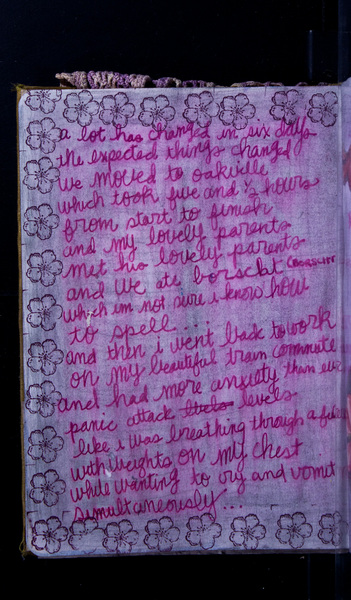 a lot has changed in six days
the expected things changed
we moved to oakville
which took five and ½ hours
from start to finish
and my lovely parents
met his lovely parents
and we ate borscht (BORSCHT
which im not sure i know how
to spell...
and then i went back to work
on my beautiful train commute
and had more anxiety than ever
panic attack levels
like i was breathing through a
with weights on my chest
while wanting to cry and vomit
simultaneously...